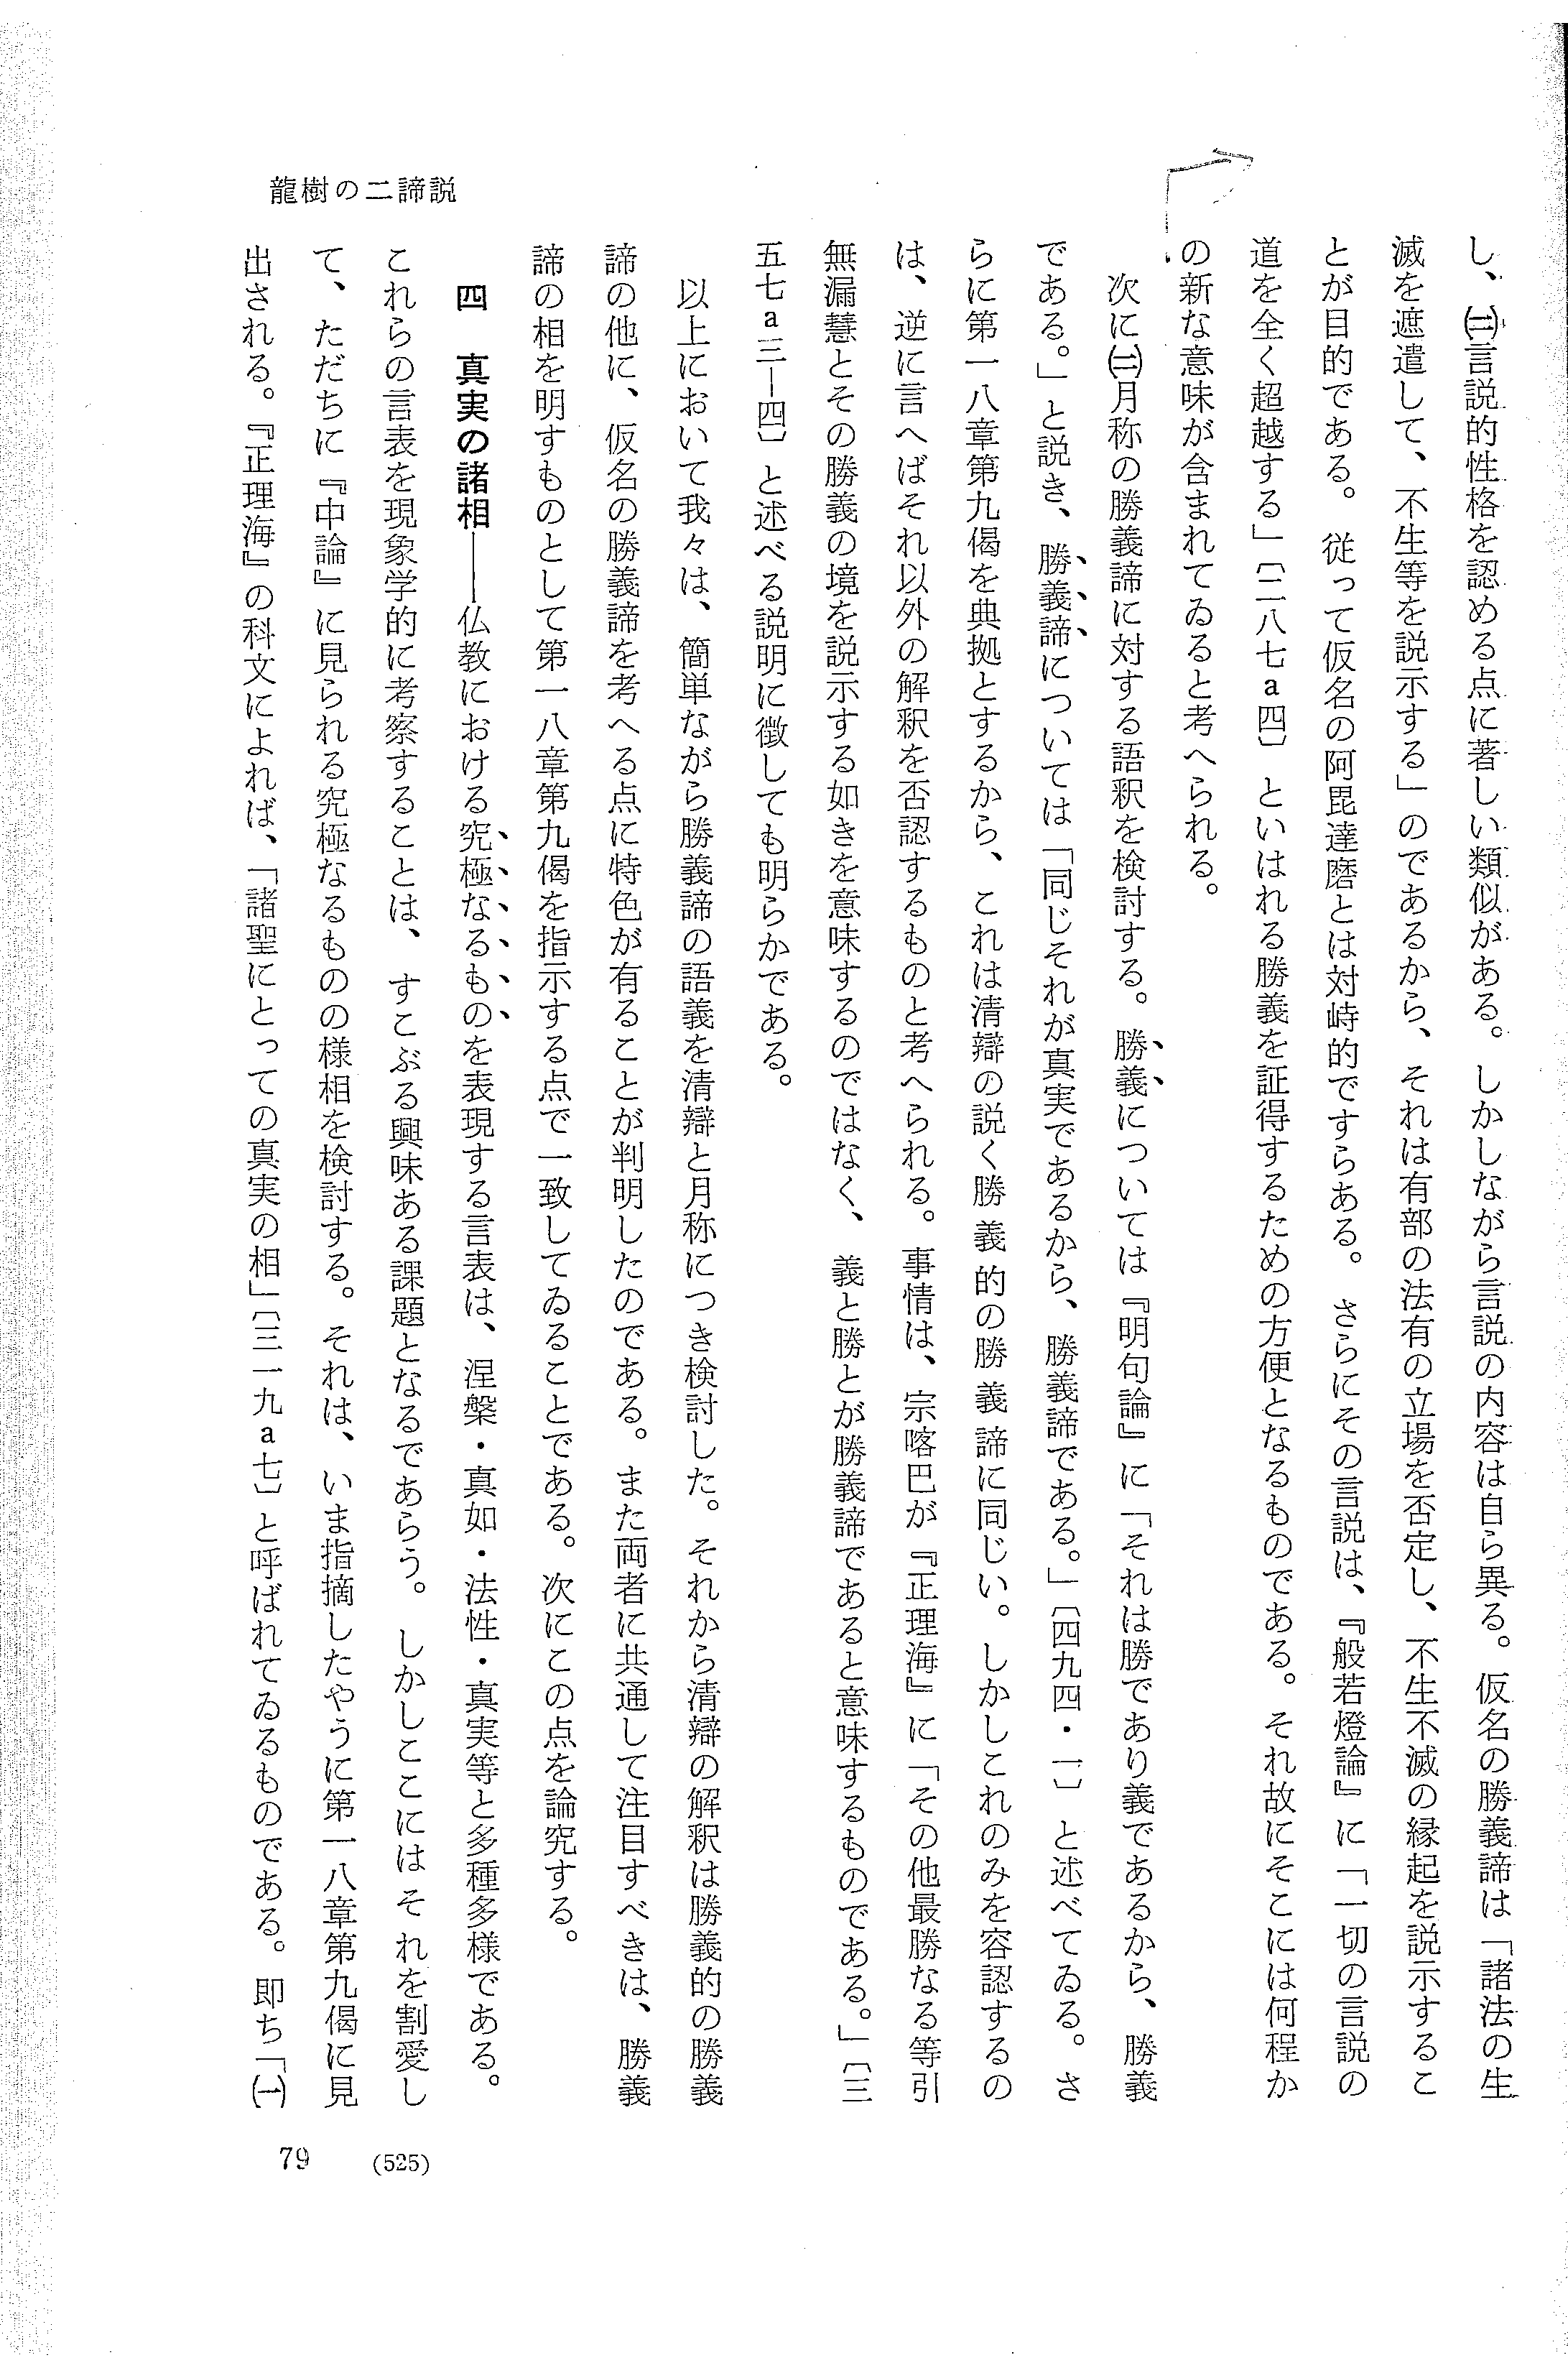 し、㈢言説的性格を認める点に著しい類似がある。しかしながら言説の内容は自ら異る。仮名の勝義諦は「諸法の生
滅を遮遣して、不生等を説示する」のであるから、それは有部の法有の立場を否定し、不生不滅の縁起を説示するこ
とが目的である。従って仮名の阿毘達磨とは対峙的ですらある。さらにその言説は、『般若燈論』に「一切の言説の
道を全く超越する」〔二八七a四〕といはれる勝義を証得するための方便となるものである。それ故にそこには何程か
の新な意味が含まれてゐると考へられる。
次に㈡月称の勝義諦に対する語釈を検討する。勝義については『明句論』に「それは勝であり義であるから、勝義
である。」と説き、勝義諦については「同じそれが真実であるから、勝義諦である。」〔四九四・一〕と述べてゐる。さ
らに第一八章第九偈を典拠とするから、これは清辯の説く勝義的の勝義諦に同じい。しかしこれのみを容認するの
は、逆に言へばそれ以外の解釈を否認するものと考へられる。事情は、宗喀巴が『正理海』に「その他最勝なる等引
無漏慧とその勝義の境を説示する如きを意味するのではなく、義と勝とが勝義諦であると意味するものである。」〔三
五七a三―四〕と述べる説明に徴しても明らかである。
以上において我々は、簡単ながら勝義諦の語義を清辯と月称につき検討した。それから清辯の解釈は勝義的の勝義
諦の他に、仮名の勝義諦を考へる点に特色が有ることが判明したのである。また両者に共通して注目すべきは、勝義
諦の相を明すものとして第一八章第九偈を指示する点で一致してゐることである。次にこの点を論究する。
四 真実の諸相――仏教における究極なるものを表現する言表は、涅槃・真如・法性・真実等と多種多様である。
これらの言表を現象学的に考察することは、すこぶる興味ある課題となるであらう。しかしここにはそれを割愛し
て、ただちに『中論』に見られる究極なるものの様相を検討する。それは、いま指摘したやうに第一八章第九偈に見
出される。『正理海』の科文によれば、「諸聖にとっての真実の相」〔三一九a七〕と呼ばれてゐるものである。即ち「㈠
龍樹の二諦説
79
(525)